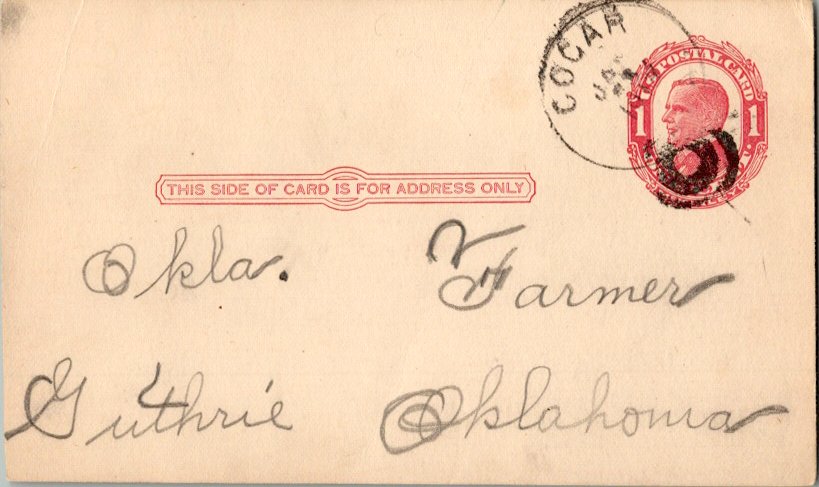 COGAR
U.S. POSTAL CARD
1 1
THIS SIDE OF CARD IS FOR ADDRESS ONLY
Okla. Farmer
Guthrie Oklahoma